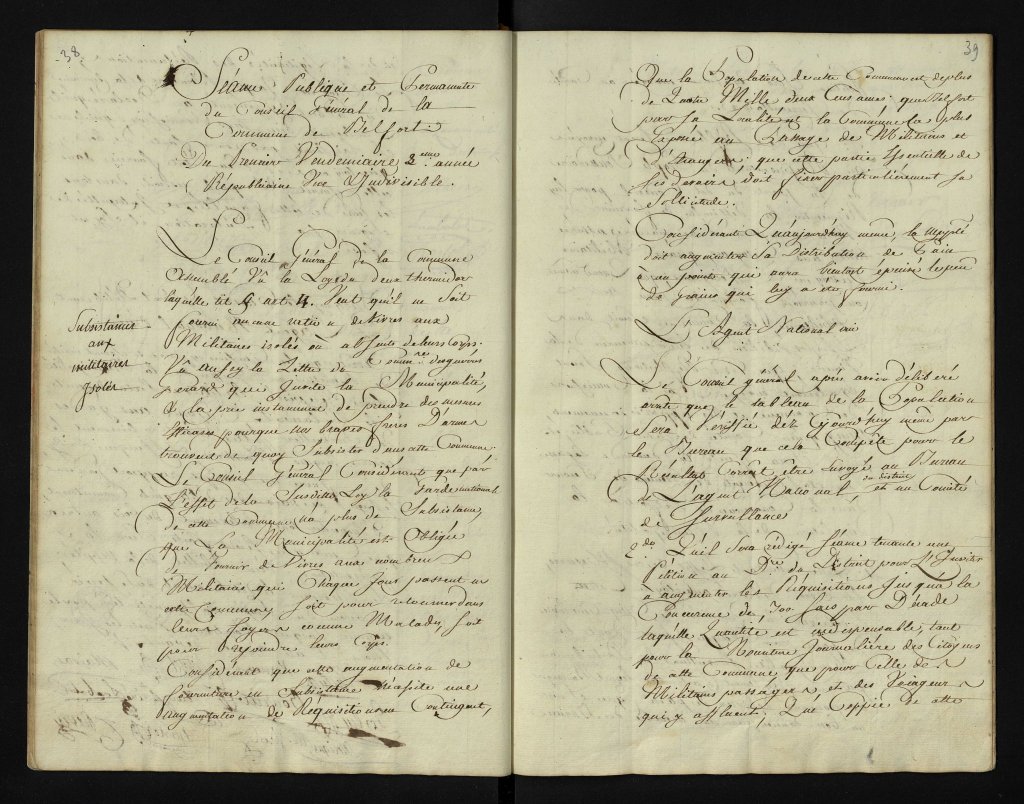 38.
Séance Publique et Permanente
du Conseil Général de la
Commune de Belfort.
Du Premier Vendemiaire 3eme année
Républicaine Une et Indivisible.
Le Conseil Général de la Commune
assemblé Vû la Loy du deux thermidor
laquelle tit 5 art 4. Veut qu'il ne soit
fourni aucune ration de vivres aux
Militaires isolés ou absents de leurs Corps.
Subsistance
aux
militaires
isolés
Vû aussy la Lettre du Commre des guerres
que Invite la Municipalité,
& la prie instamment de prendre des mesures
efficaces pour que nos braves freres D'armes
trouvent de quoy Subsister dans cette Commune.
Le Conseil Général Considérant que par
L'effet de la Susditte Loy la Garde nationale
de cette Commune n'a plus de Subsistance,
que la Municipalité est Obligée
de fournir de Vivres aux nombreux
Militaires qui Chaque Jour passent en
cette Commune, soit pour retourner dans
leurs foyers comme Malades, soit
pour rejoindre leurs Corps.
Considérant que cette augmentation de
fourniture en Subsistance nécessite une
augmentation de Réquisition en Contingent,
39
Que la Population de cette Commune est de plus
de Quatre Mille deux Cens ames: que Belfort
par sa Localité est la Commune la plus
Exposée au Passage de Militaires et
D'Etrangers: que cette partie Essentielle de
ses devoirs doit fixer particulièrement sa
Sollicitude.
Considérant Qu'aujourdhuy meme, la Mppté
doit augmenter sa Distribution de Pain
à un point qui aura bientost épuisé le peu
de grains qui luy a été fourni.
L'Agent National oui
Le Conseil général après avoir délibéré
arrete que le tableau de la Population
Sera Vérifié dès Cejourdhuy même par
le Bureau que cela Compète pour le
Résultat Correct être envoyé au Bureau
de L'agent National du district, et au Comité
de Surveillance
2do. Qu'il sera rédigé Séance tenante une
Pétition au Dre. du District pour L'Inviter
à augmenter les Réquisitions Jusqu'à la
Concurrence de 700 sacs par Décade
laquelle Quantité est indispensable, tant
pour la Nourriture Journalière des Citoyens
de cette Commune que pour Celle des
Militaires passagers et des Voyageurs
qui y affluent; Que Coppie de cette